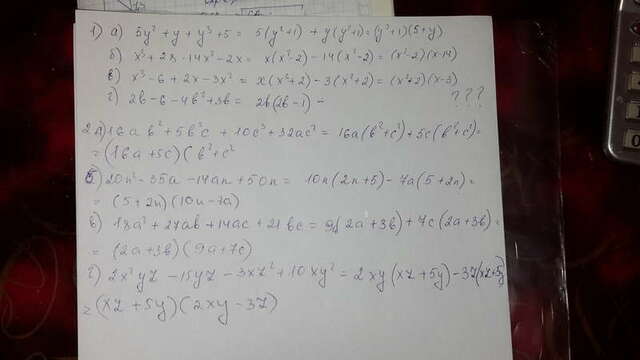 1) а) 5y² + y + y³ + 5 = 5(y²+1) + y(y²+1) = (y²+1)(5+y)
б) x³ + 28 - 14x² - 2x = x(x²-2) - 14(x²-2) = (x²-2)(x-14)
в) x³ - 6 + 2x - 3x² = x(x²+2) - 3(x²+2) = (x²+2)(x-3)
г) 2b - 6 - 4b² + 3b = 2b(2b-1) - ???
2 а) 16ab² + 5b²c + 10c³ + 32ac² = 16a(b²+c²) + 5c(b²+c²) =
= (16a+5c)(b²+c²
б) 20n² - 35a - 14an + 50n = 10n(2n+5) - 7a(5+2n) =
= (5+2n)(10n-7a)
в) 18a² + 27ab + 14ac + 21bc = 9a(2a+3b) + 7c(2a+3b) =
= (2a+3b)(9a+7c)
г) 2x²yz - 15yz - 3xz² + 10xy² = 2xy(xz+5y) - 3z(xz+5y)
= (xz+5y)(2xy-3z)